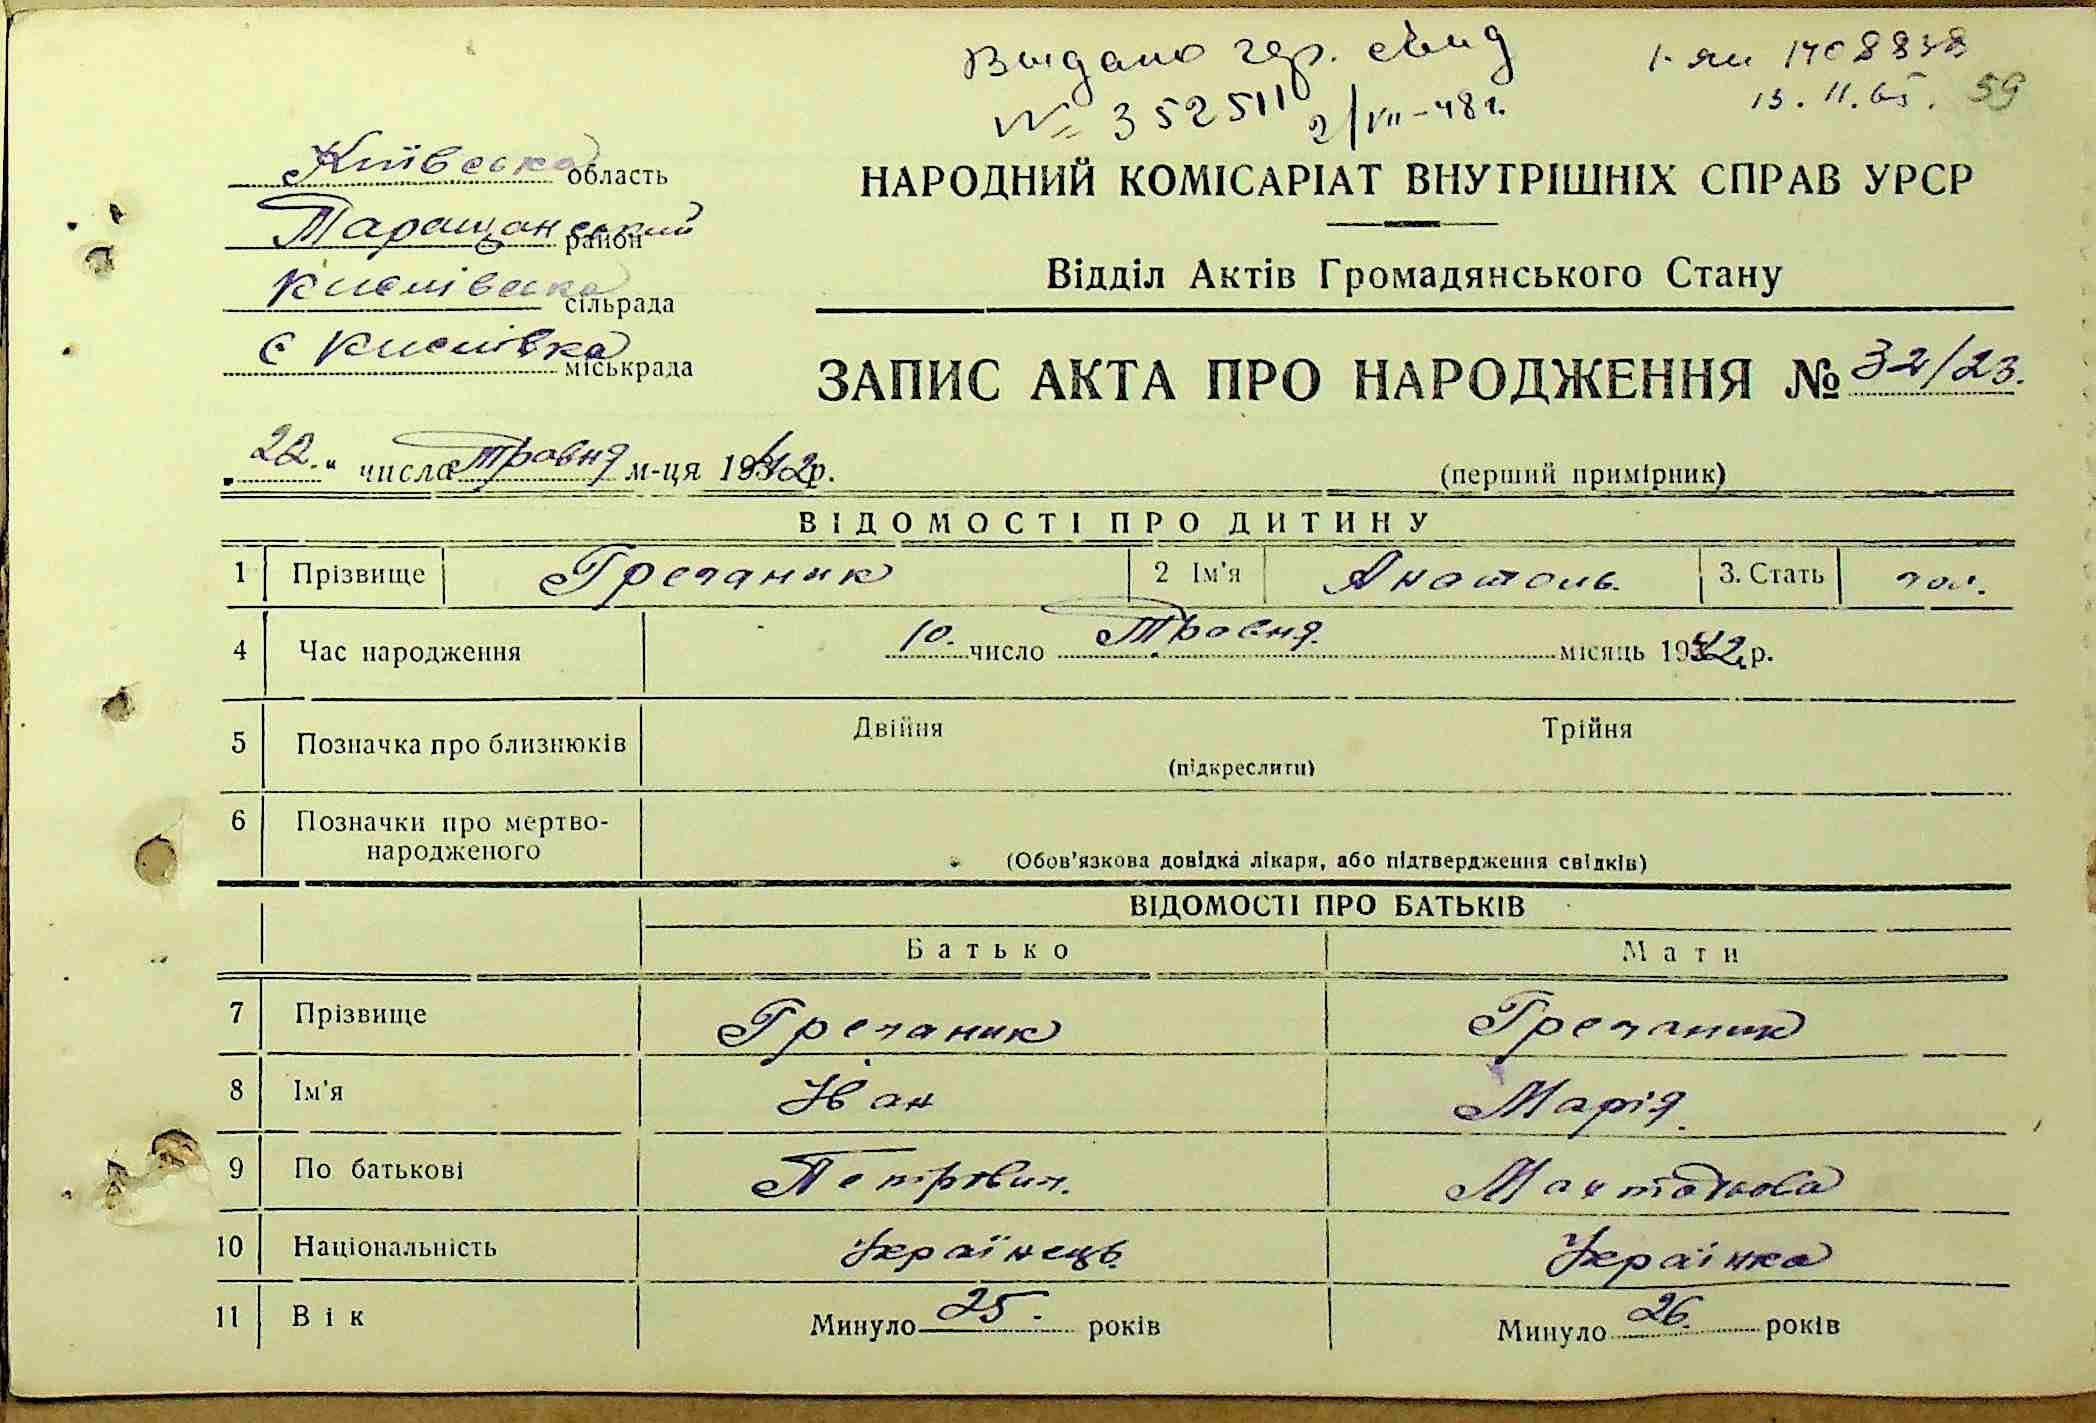 Видано гер. свид
№ 352511 2/VII-48 г.
I-ЯИ 1708838
13.11.65. 59
Київська область
Таращанський район
Кислівська сільрада
с Кислівка міськрада
НАРОДНИЙ КОМІСАРІАТ ВНУТРІШНІХ СПРАВ УРСР
Відділ Актів Громадянського Стану
ЗАПИС АКТА ПРО НАРОДЖЕННЯ № 32/23.
„22." числа травня м-ця 1942 р.
(перший примірник)
ВІДОМОСТІ ПРО ДИТИНУ
1 Прізвище Гречаник 2 Ім'я Анатоль 3. Стать чол.
4 Час народження 10. число Травня місяць 1942 р.
5 Позначка про близнюків Двійня Трійня
(підкреслити)
6 Позначки про мертво-
народженого
(Обов'язкова довідка лікаря, або підтвердження свідків)
ВІДОМОСТІ ПРО БАТЬКІВ
Батько Мати
7 Прізвище Гречаник Гречаник
8 Ім'я Іван Марія
9 По батькові Петрович
10 Національність Українець Українка
11 Вік Минуло 25. років Минуло 26. років